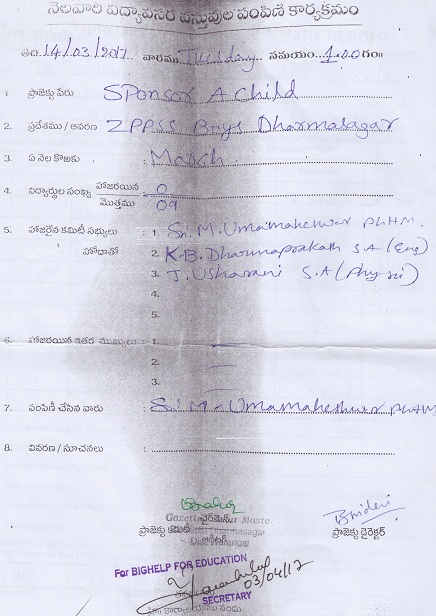 నెలవారి విద్యావసర వస్తువుల పంపిణి కార్యక్రమం
తేది.14/03/2017 వారము Tuesday సమయం.1.00గం॥
1. ప్రాజెక్టు పేరు : SPonsor A Child
2. ప్రదేశము / ఆవరణ : ZPPSS Boys Dharmasagar
3. ఏ నెల కొఱకు : March
4. విద్యార్థుల సంఖ్య హాజరయిన : 0
మొత్తము : 09
5. హాజరైన కమిటీ సభ్యులు : 1. Sri. M. Umamaheshwar Ph.HM.
హోదాతో 2. K.B. Dharmaprakash S.A (Eng)
3. J. Usharani S.A (Phy sci)
4.
5.
6. హాజరయిన ఇతర ముఖ్యులు : 1.
2.
3.
7. పంపిణీ చేసిన వారు : Sri M. Umamaheshwar Ph.HM
8. వివరణ / సూచనలు :
చైర్‌మెన్
ప్రాజెక్టు కమిటి ప్రాజెక్టు డైరెక్టర్
For BIGHELP FOR EDUCATION
03/04/17
SECRETARY